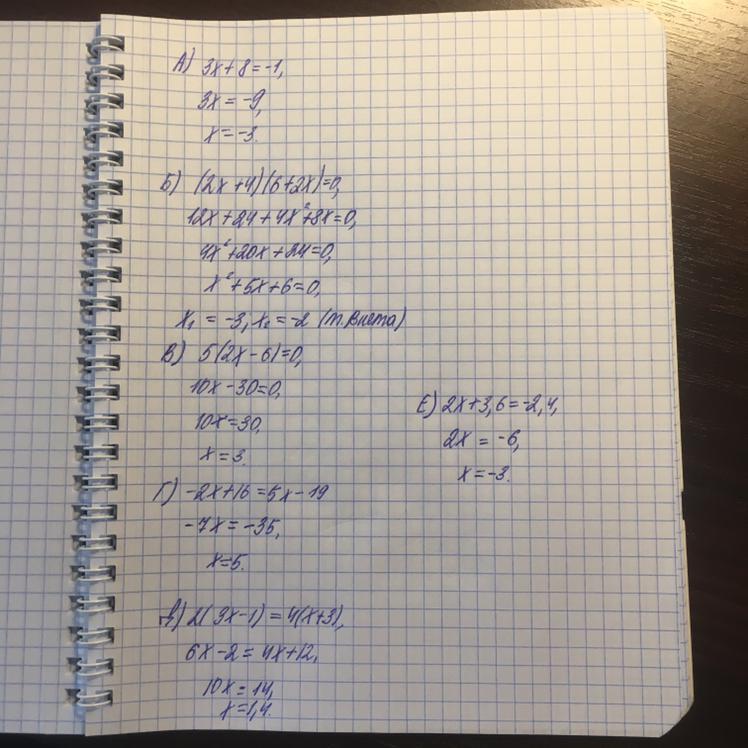 А) 3x+8=-1,
3x=-9,
x=-3.
Б) (2x+4)(6+2x)=0,
12x+24+4x²+8x=0,
4x²+20x+24=0,
x²+5x+6=0,
x₁=-3, x₂=-2 (т.Виета)
В) 5(2x-6)=0,
10x-30=0,
10x=30,
x=3.
Г) -2x+16=5x-19
-7x=-35,
x=5.
Д) 2(3x-1)=4(x+3),
6x-2=4x+12,
10x=14,
x=1,4.
Е) 2x+3,6=-2,4,
2x=-6,
x=-3.